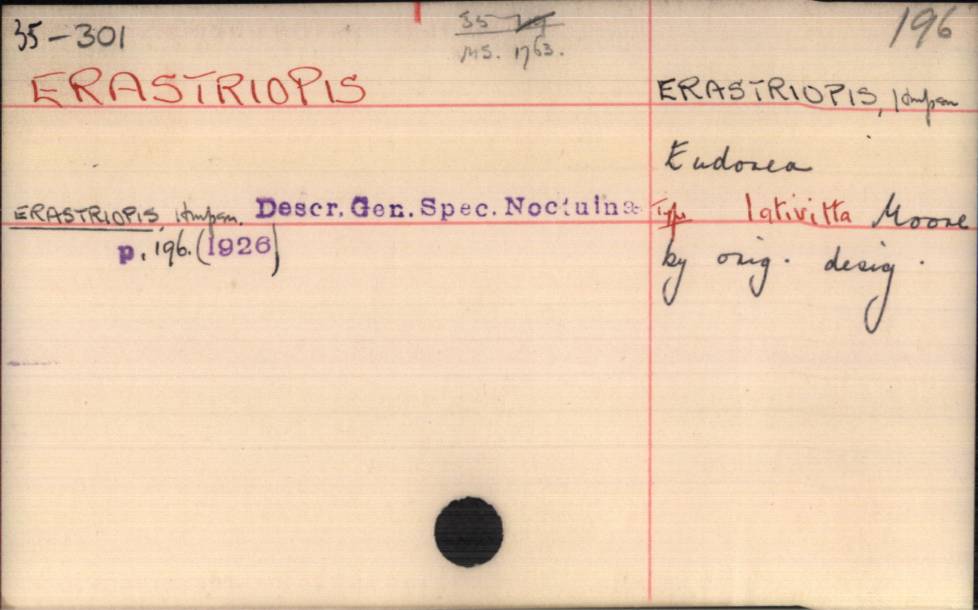 35-301
35
MS. 1763.
196
ERASTRIOPIS
ERASTRIOPIS, Hmpsn
Eudosea
ERASTRIOPIS, Hmpsn. Descr. Gen. Spec. Noctuinæ
p. 196. (1926)
Type lativitta Moore
by orig. desig.